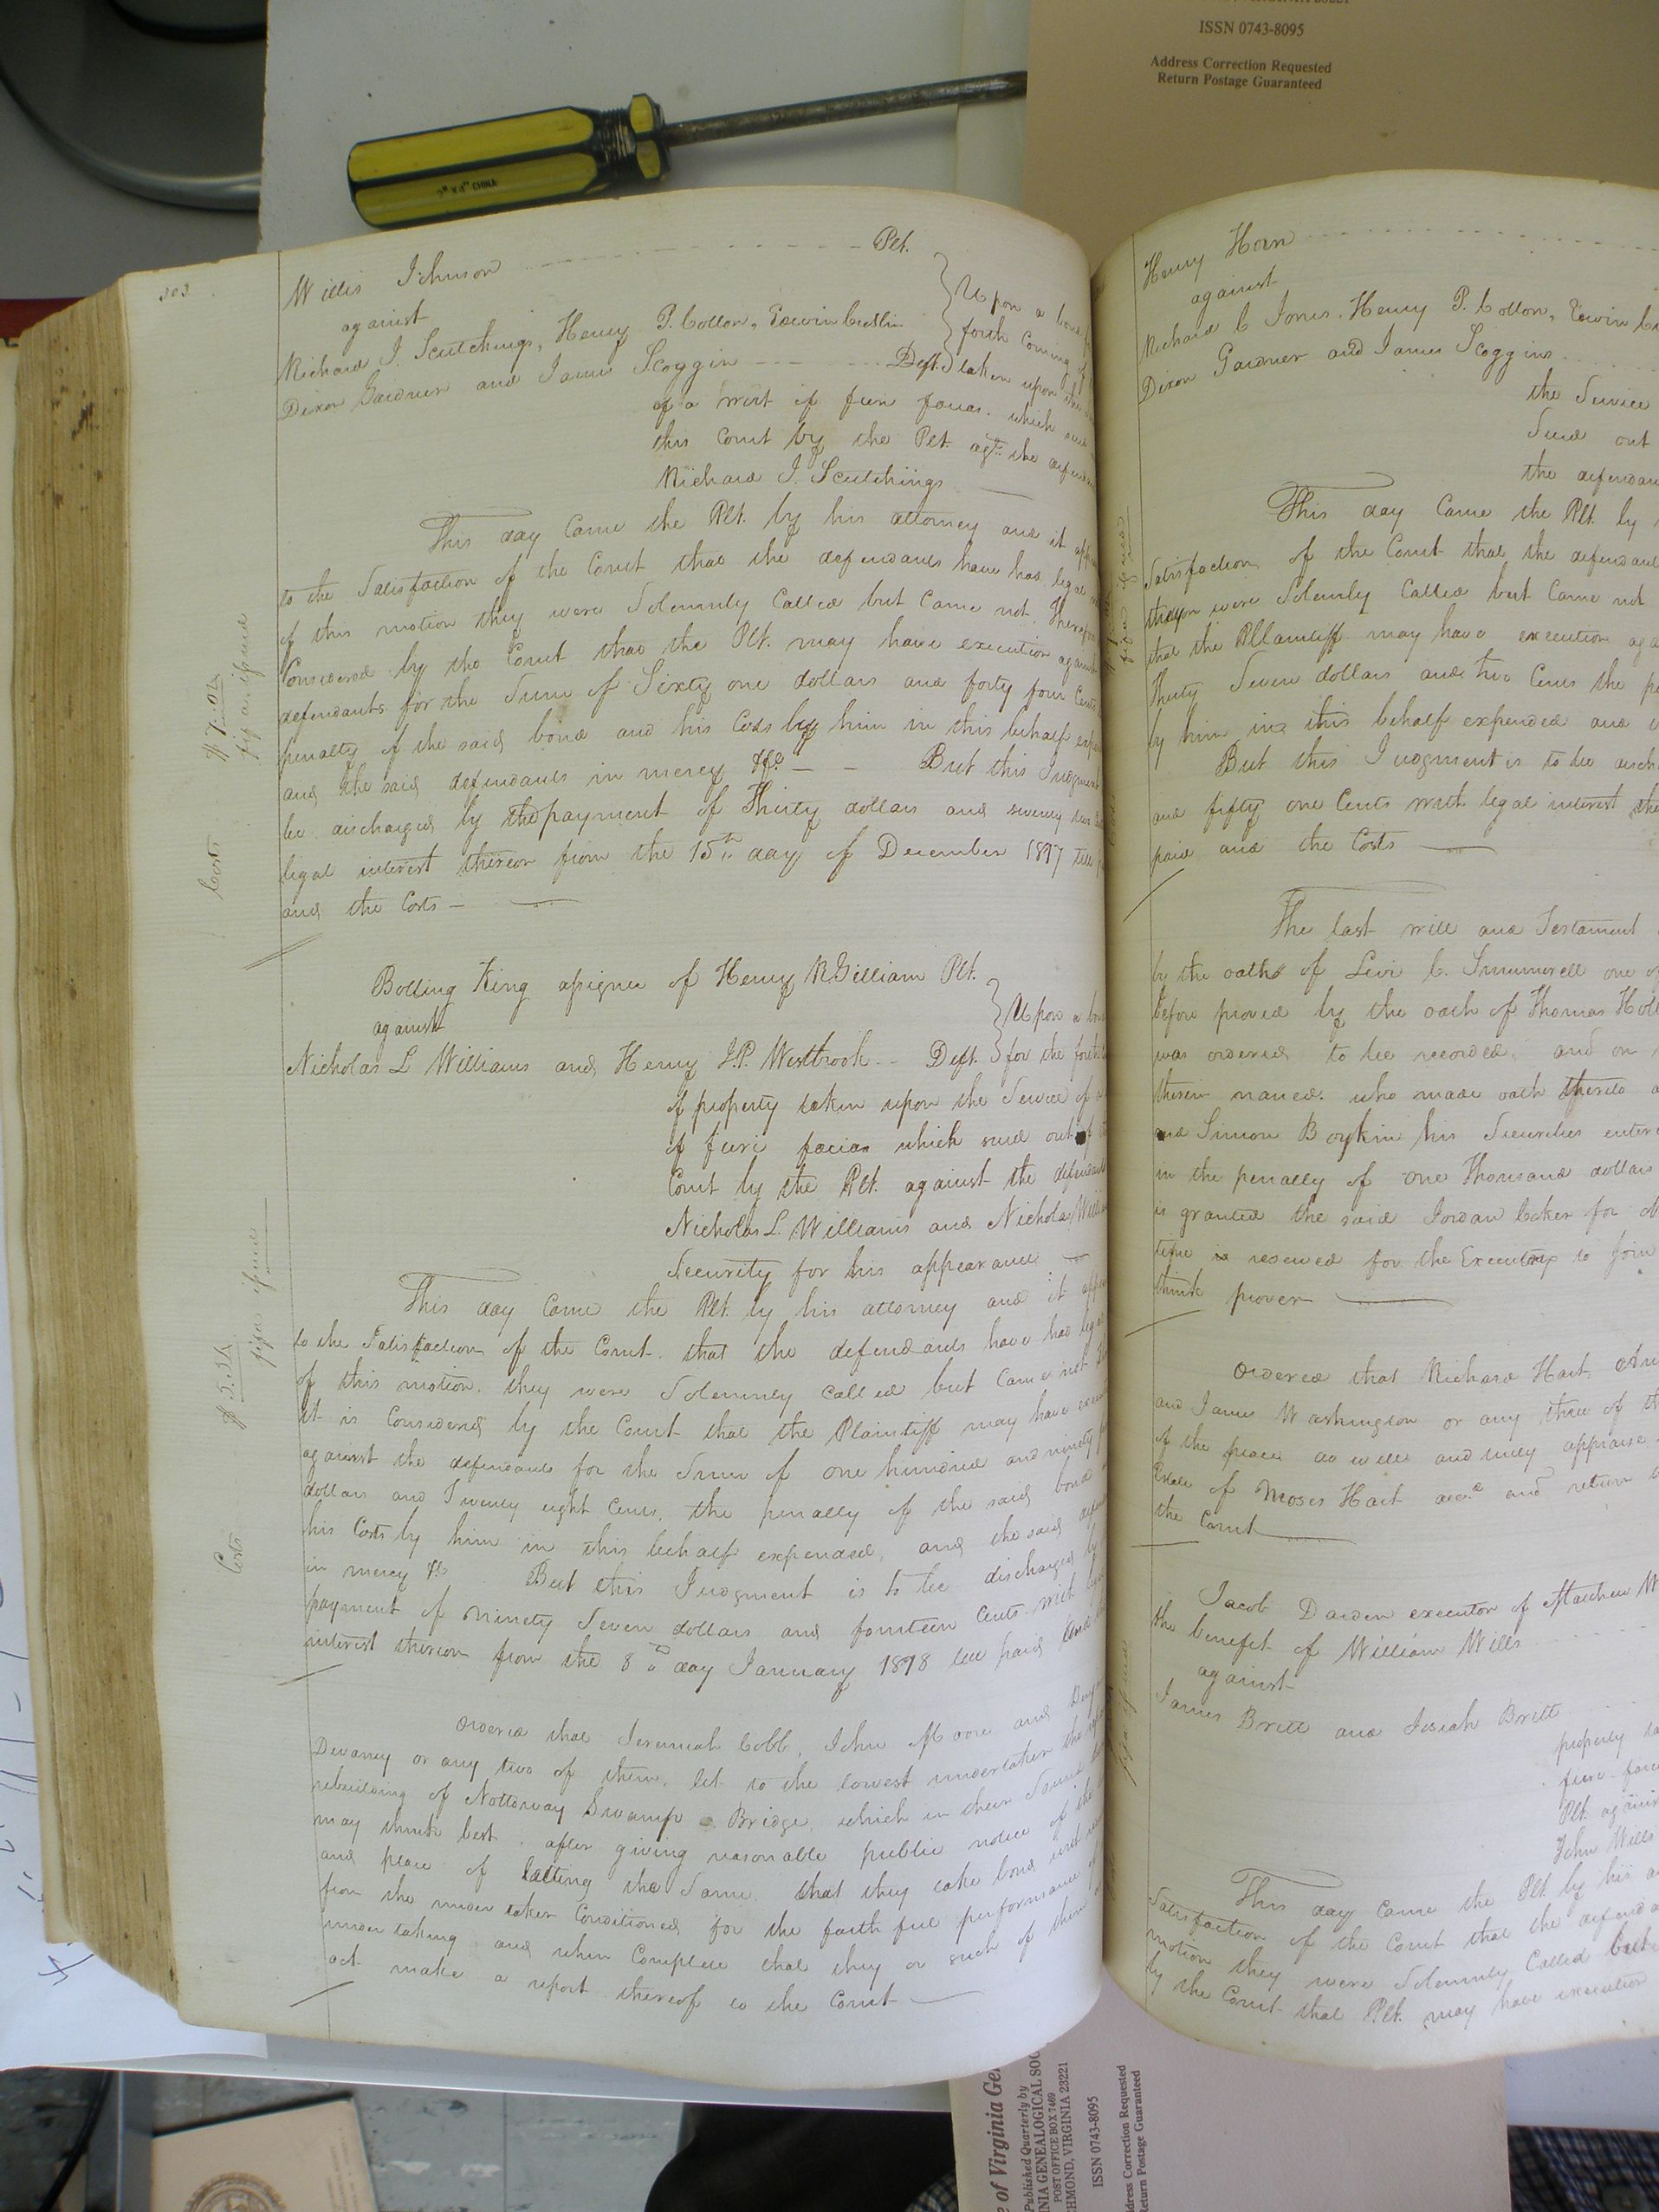 ISSN 0743-8095
Address Correction Requested
Return Postage Guaranteed
CHINA
303
Willis Johnson Plt.
against
Richard J. Scutchings, Henry P. Cotton, Edwin
Dixon Gardner and James Scoggin Deft.
Upon a bond
forth coming
taken upon the
of a writ of fieri facias which
this Court by the Plt. agt. the
Richard J. Scutchings
This day Came the Plt. by his attorney and it
to the Satisfaction of the Court that the defendants have had legal
of this motion they were Solemnly Called but Came not. Therefore
Considered by the Court that the Plt. may have execution against
defendants for the Sum of Sixty one dollars and forty four Cents
penalty of the said bond and his Costs by him in this behalf
and the said defendants in mercy &c. But this Judgment
be discharged by the payment of Thirty dollars and seventy
legal interest thereon from the 15th day of December 1817 till
and the Costs
$7.02
fifa issued
Costs
Bolling King assignee of Henry R Gilliam Plt.
against
Nicholas L Williams and Henry J.P. Westbrook Deft.
Upon a
for the
of property taken upon the Service of
of fieri facias which sued out of
Court by the Plt. against the defendants
Nicholas L. Williams and Nicholas
Security for his appearance
This day Came the Plt. by his attorney and it
to the Satisfaction of the Court that the defendants have had
of this motion, they were Solemnly called but Came not
It is Considered by the Court that the Plaintiff may have
against the defendants for the Sum of one hundred and ninety
dollars and Twenty eight Cents, the penalty of the said bond
his Costs by him in this behalf expended, and the said
in mercy &c But this Judgment is to be discharged by
payment of ninety Seven dollars and fourteen Cents with
interest thereon from the 8th day January 1818 till paid
fifa issued
Costs
Ordered that Jeremiah Cobb, John Moore and
Devaney or any two of them, let to the lowest undertaker the
rebuilding of Nottoway Swamp Bridge, which in their
may think best, after giving reasonable public notice of the
and place of letting the Same, that they take bond
from the undertaker Conditioned for the faithful performance of
undertaking and when Complete that they or such of them
act make a report thereof to the Court
Henry Horn
against
Richard C Jones, Henry P. Cotton, Edwin
Dixon Gardner and James Scoggins
the Service
Sued out
the defendant
This day Came the Plt. by
Satisfaction of the Court that the defendants
they were Solemnly Called but Came not
that the Plaintiff may have execution
Thirty Seven dollars and two Cents the
by him in this behalf expended and
But this Judgment is to be
and fifty one Cents with legal interest
paid and the Costs
The last will and Testament
by the oaths of Levi C. Summerell one of
before proved by the oath of Thomas
was ordered to be recorded, and on
therein named who made oath thereto
and Simon Boykin his Securities
in the penalty of one Thousand dollars
is granted the said Jordan Coker for
time is reserved for the Executrix to join
think prover
Ordered that Richard Hart,
and James Washington or any three of
of the peace do well and truly appraise
Estate of Moses Hart decd and return
the Court
Jacob Darden executor of Matthew
the benefit of William Wills
against
James Britt and Josiah Britt
property
fieri
Plt. against
John Wills
This day Came the Plt. by his
Satisfaction of the Court that the
motion they were Solemnly Called but
by the Court that Plt. may have execution
of Virginia
Published Quarterly by
GENEALOGICAL
POST OFFICE BOX 7469
RICHMOND, VIRGINIA 23221
ISSN 0743-8095
Address Correction Requested
Return Postage Guaranteed